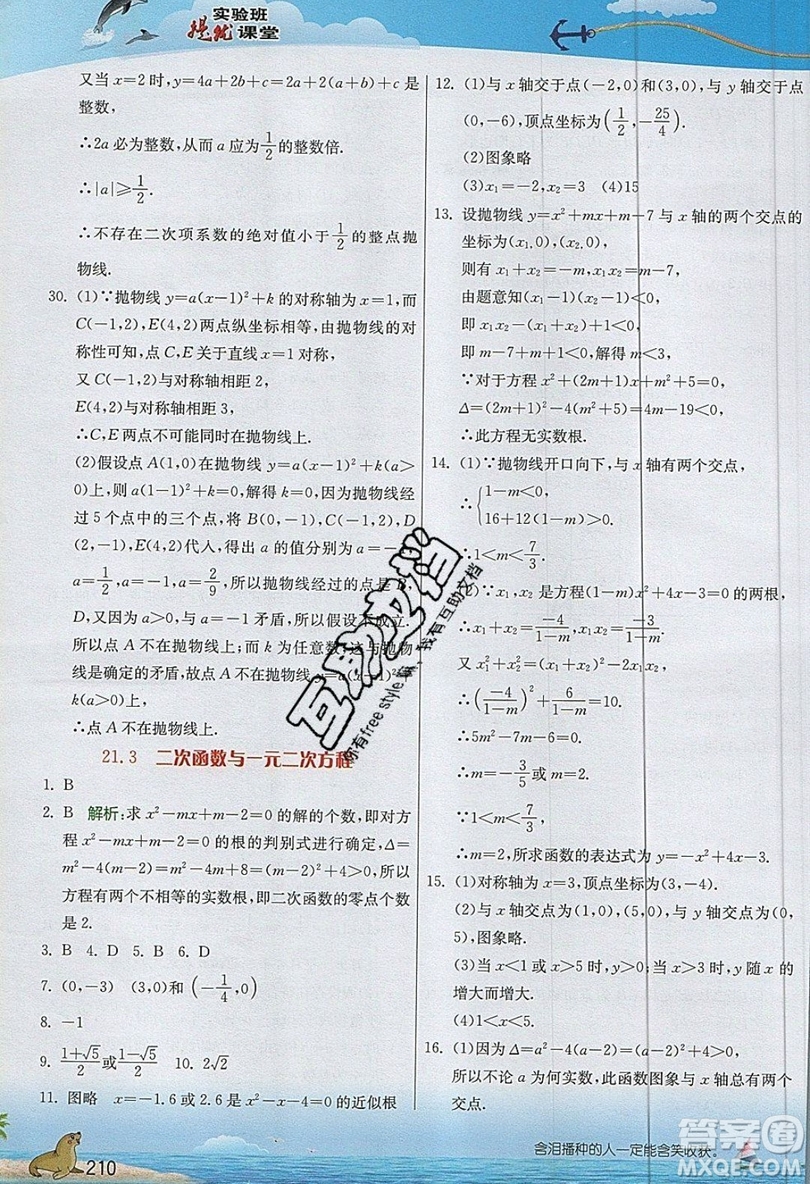 实验班
提优课堂
又当x=2时,y=4a+2b+c=2a+2(a+b)+c是
整数,
∴2a必为整数,从而a应为1/2的整数倍.
∴|a|≥1/2.
∴不存在二次项系数的绝对值小于1/2的整点抛
物线.
30. (1)∵抛物线y=a(x-1)²+k的对称轴为x=1,而
C(-1,2),E(4,2)两点纵坐标相等,由抛物线的对
称性可知,点C,E关于直线x=1对称,
又C(-1,2)与对称轴相距2,
E(4,2)与对称轴相距3,
∴C,E两点不可能同时在抛物线上.
(2)假设点A(1,0)在抛物线y=a(x-1)²+k(a>
0)上,则a(1-1)²+k=0,解得k=0,因为抛物线经
过5个点中的三个点,将B(0,-1),C(-1,2),D
(2,-1),E(4,2)代入,得出a的值分别为a=-1,
a=1/2,a=-1,a=2/9,所以抛物线经过的点是B,
D,又因为a>0,与a=-1矛盾,所以假设不成立.
所以点A不在抛物线上;而k为任意数,这与抛物
线是确定的矛盾,故点A不在抛物线y=a(x-1)²
k(a>0)上.
∴点A不在抛物线上.
21.3 二次函数与一元二次方程
1. B
2. B 解析:求x²-mx+m-2=0的解的个数,即对方
程x²-mx+m-2=0的根的判别式进行确定,Δ=
m²-4(m-2)=m²-4m+8=(m-2)²+4>0,所以
方程有两个不相等的实数根,即二次函数的零点个数
是2.
3. B 4. D 5. B 6. D
7. (0,-3) (3,0)和(-1/4,0)
8. -1
9. (1+√5)/2或(1-√5)/2 10. 2√2
11. 图略 x=-1.6或2.6是x²-x-4=0的近似根
12. (1)与x轴交于点(-2,0)和(3,0),与y轴交于点
(0,-6),顶点坐标为(1/2,-25/4).
(2)图象略
(3)x₁=-2,x₂=3 (4)15
13. 设抛物线y=x²+mx+m-7与x轴的两个交点的
坐标为(x₁,0),(x₂,0),
则有x₁+x₂=-m,x₁x₂=m-7.
由题意知(x₁-1)(x₂-1)<0,
即x₁x₂-(x₁+x₂)+1<0,
即m-7+m+1<0,解得m<3,
∵对于方程x²+(2m+1)x+m²+5=0,
Δ=(2m+1)²-4(m²+5)=4m-19<0,
∴此方程无实数根.
14. (1)∵抛物线开口向下,与x轴有两个交点,
∴{1-m<0,
16+12(1-m)>0.
∴1<m<7/3.
(2)∵x₁,x₂是方程(1-m)x²+4x-3=0的两根,
∴x₁+x₂=-4/(1-m),x₁x₂=-3/(1-m).
又x₁²+x₂²=(x₁+x₂)²-2x₁x₂,
∴(-4/(1-m))²+6/(1-m)=10.
∴5m²-7m-6=0.
∴m=-3/5或m=2.
∵1<m<7/3,
∴m=2,所求函数的表达式为y=-x²+4x-3.
15. (1)对称轴为x=3,顶点为(3,-4).
(2)与x轴交点为(1,0),(5,0),与y轴交点为(0,
5),图象略.
(3)当x<1或x>5时,y>0,当x>3时,y随x的
增大而增大.
(4)1<x<5.
16. (1)因为Δ=a²-4(a-2)=(a-2)²+4>0,
所以不论a为何实数,此函数图象与x轴总有两个
交点.
含泪播种的人一定能含笑收获。
210
互助文档
你有free style吗,我有互助文档
答案圈
MXQE.COM